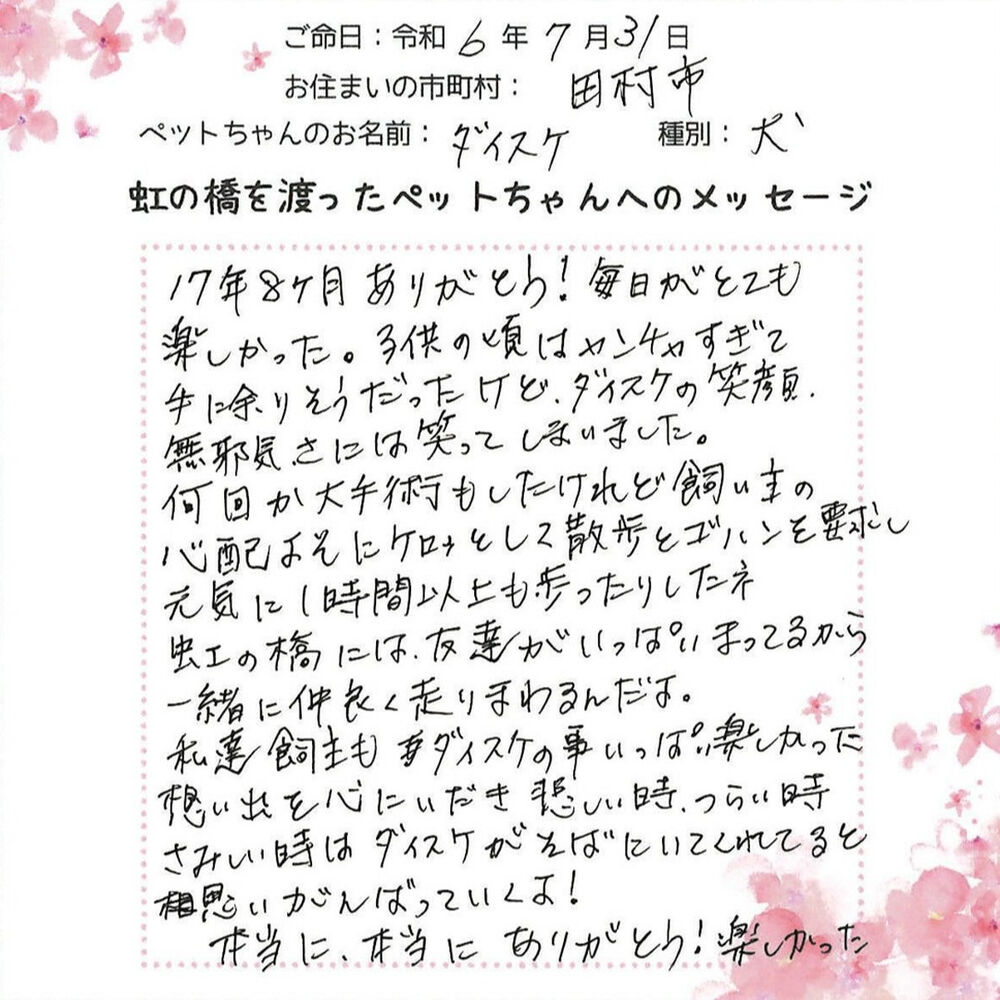 ご命日：令和 6 年 7 月 31 日
お住まいの市町村： 田村市
ペットちゃんのお名前： ダイスケ 種別： 犬
虹の橋を渡ったペットちゃんへのメッセージ
17年8ヶ月 ありがとう！毎日がとても
楽しかった。子供の頃はヤンチャすぎて
手に余りそうだったけど、ダイスケの笑顔、
無邪気さには笑ってしまいました。
何回か大手術もしたけれど飼い主の
心配よそにケロッとして散歩とゴハンを要求し
元気に1時間以上も歩ったりしたネ
虹の橋には、友達がいっぱいまってるから
一緒に仲良く走りまわるんだよ。
私達飼主もダイスケの事いっぱい楽しかった
想い出を心にいだき悲しい時、つらい時
さみしい時はダイスケがそばにいてくれてると
思いがんばっていくよ！
本当に、本当に ありがとう！楽しかった